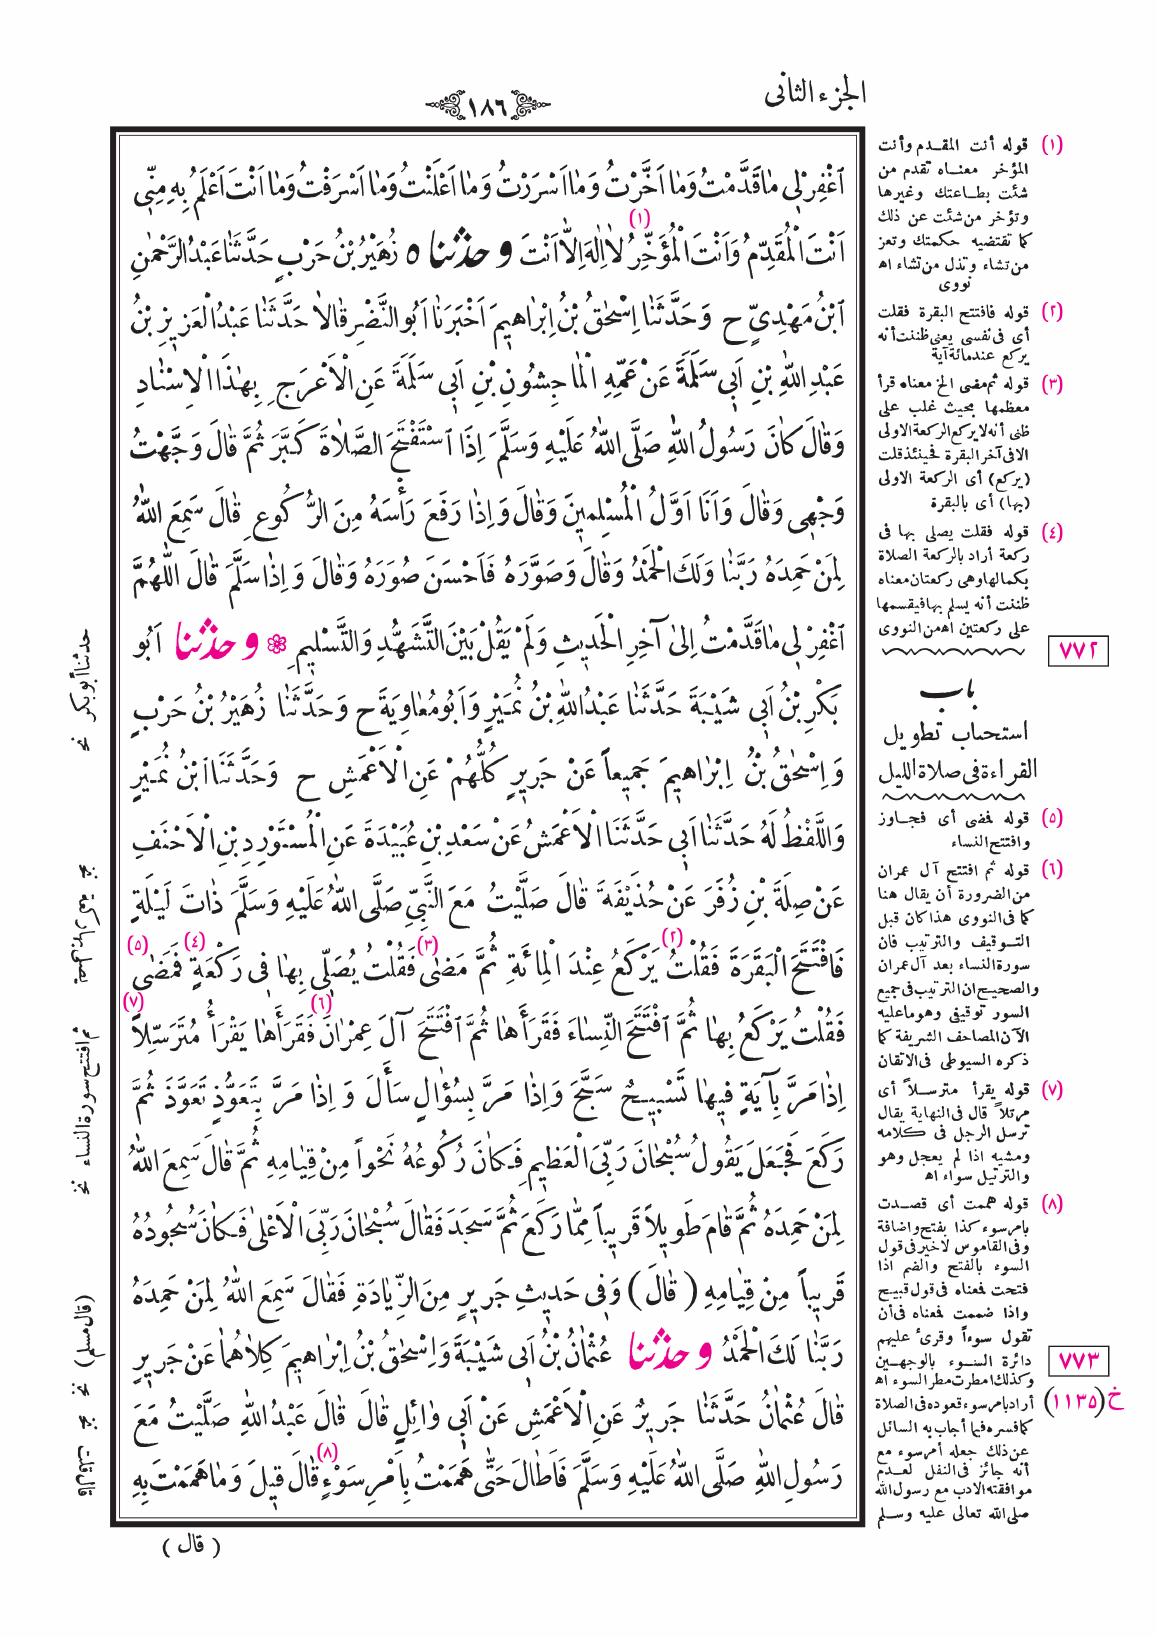 الجزء الثانى
١٨٦
اَغْفِرْلِى مَاقَدَّمْتُ وَمَا اَخَّرْتُ وَمَا اَسْرَرْتُ وَمَا اَعْلَنْتُ وَمَا اَسْرَفْتُ وَمَا اَنْتَ اَعْلَمُ بِهِ مِنِّى
اَنْتَ الْمُقَدِّمُ وَاَنْتَ الْمُؤَخِّرُ (١) لاٰ اِلٰهَ اِلاّٰ اَنْتَ وحدثناه زُهَيْرُ بْنُ حَرْبٍ حَدَّثَنَا عَبْدُ الرَّحْمٰنِ
ابْنُ مَهْدِيٍّ ح وَحَدَّثَنَا اِسْحٰقُ بْنُ اِبْرَاهِيمَ اَخْبَرَنَا اَبُو النَّضْرِ قَالاٰ حَدَّثَنَا عَبْدُ الْعَزِيزِ بْنُ
عَبْدِ اللهِ بْنِ اَبِى سَلَمَةَ عَنْ عَمِّهِ الْمَاجِشُونِ بْنِ اَبِى سَلَمَةَ عَنِ الْاَعْرَجِ بِهٰذَا الْاِسْنَادِ
وَقَالَ كَانَ رَسُولُ اللهِ صَلَّى اللهُ عَلَيْهِ وَسَلَّمَ اِذَا اسْتَفْتَحَ الصَّلاَةَ كَبَّرَ ثُمَّ قَالَ وَجَّهْتُ
وَجْهِى وَقَالَ وَاَنَا اَوَّلُ الْمُسْلِمِينَ وَقَالَ وَاِذَا رَفَعَ رَأْسَهُ مِنَ الرُّكُوعِ قَالَ سَمِعَ اللهُ
لِمَنْ حَمِدَهُ رَبَّنَا وَلَكَ الْحَمْدُ وَقَالَ وَصَوَّرَهُ فَاَحْسَنَ صُوَرَهُ وَقَالَ وَاِذَا سَلَّمَ قَالَ اللّٰهُمَّ
اغْفِرْ لِى مَا قَدَّمْتُ اِلىٰ آخِرِ الْحَدِيثِ وَلَمْ يَقُلْ بَيْنَ التَّشَهُّدِ وَالتَّسْلِيمِ ۞ وحدثنا اَبُو
بَكْرِ بْنُ اَبِى شَيْبَةَ حَدَّثَنَا عَبْدُ اللهِ بْنُ نُمَيْرٍ وَاَبُو مُعَاوِيَةَ ح وَحَدَّثَنَا زُهَيْرُ بْنُ حَرْبٍ
وَاِسْحٰقُ بْنُ اِبْرَاهِيمَ جَمِيعاً عَنْ جَرِيرٍ كُلُّهُمْ عَنِ الْاَعْمَشِ ح وَحَدَّثَنَا ابْنُ نُمَيْرٍ
وَاللَّفْظُ لَهُ حَدَّثَنَا اَبِى حَدَّثَنَا الْاَعْمَشُ عَنْ سَعْدِ بْنِ عُبَيْدَةَ عَنِ الْمُسْتَوْرِدِ بْنِ الْاَحْنَفِ
عَنْ صِلَةَ بْنِ زُفَرَ عَنْ حُذَيْفَةَ قَالَ صَلَّيْتُ مَعَ النَّبِيِّ صَلَّى اللهُ عَلَيْهِ وَسَلَّمَ ذَاتَ لَيْلَةٍ
فَافْتَتَحَ الْبَقَرَةَ فَقُلْتُ (٢) يَرْكَعُ عِنْدَ الْمِائَةِ ثُمَّ مَضٰى (٣) فَقُلْتُ يُصَلِّى بِهَا فِى رَكْعَةٍ (٤) فَمَضٰى (٥)
فَقُلْتُ يَرْكَعُ بِهَا ثُمَّ افْتَتَحَ النِّسَاءَ فَقَرَأَهَا ثُمَّ افْتَتَحَ آلَ عِمْرَانَ (٦) فَقَرَأَهَا يَقْرَأُ مُتَرَسِّلاً (٧)
اِذَا مَرَّ بِآيَةٍ فِيهَا تَسْبِيحٌ سَبَّحَ وَاِذَا مَرَّ بِسُؤَالٍ سَأَلَ وَاِذَا مَرَّ بِتَعَوُّذٍ تَعَوَّذَ ثُمَّ
رَكَعَ فَجَعَلَ يَقُولُ سُبْحَانَ رَبِّىَ الْعَظِيمِ فَكَانَ رُكُوعُهُ نَحْواً مِنْ قِيَامِهِ ثُمَّ قَالَ سَمِعَ اللهُ
لِمَنْ حَمِدَهُ ثُمَّ قَامَ طَوِيلاً قَرِيباً مِمَّا رَكَعَ ثُمَّ سَجَدَ فَقَالَ سُبْحَانَ رَبِّىَ الْاَعْلىٰ فَكَانَ سُجُودُهُ
قَرِيباً مِنْ قِيَامِهِ (قَالَ) وَفِى حَدِيثِ جَرِيرٍ مِنَ الزِّيَادَةِ فَقَالَ سَمِعَ اللهُ لِمَنْ حَمِدَهُ
رَبَّنَا لَكَ الْحَمْدُ وحدثنا عُثْمَانُ بْنُ اَبِى شَيْبَةَ وَاِسْحٰقُ بْنُ اِبْرَاهِيمَ كِلاَهُمَا عَنْ جَرِيرٍ
قَالَ عُثْمَانُ حَدَّثَنَا جَرِيرٌ عَنِ الْاَعْمَشِ عَنْ اَبِى وَائِلٍ قَالَ قَالَ عَبْدُ اللهِ صَلَّيْتُ مَعَ
رَسُولِ اللهِ صَلَّى اللهُ عَلَيْهِ وَسَلَّمَ فَاَطَالَ حَتّٰى هَمَمْتُ بِاَمْرِ سَوْءٍ (٨) قَالَ قِيلَ وَمَا هَمَمْتَ بِهِ
( قال )
(١) قوله أنت المقدم وأنت
المؤخر معناه تقدم من
شئت بطاعتك وغيرها
وتؤخر من شئت عن ذلك
كما تقتضيه حكمتك وتعز
من تشاء وتذل من تشاء اه
نووى
(٢) قوله فافتتح البقرة فقلت
أى فى نفسى يعنى ظننت أنه
يركع عند مائة آية
(٣) قوله ثم مضى الخ معناه قرأ
معظمها بحيث غلب على
ظنى أنه لا يركع الركعة الاولى
الا فى آخر البقرة فحينئذ قلت
(يركع) أى الركعة الاولى
(بها) أى بالبقرة
(٤) قوله فقلت يصلى بها فى
ركعة أراد بالركعة الصلاة
بكمالها وهى ركعتان معناه
ظننت أنه يسلم بها فيقسمها
على ركعتين اه من النووى
٧٧٢
باب
استحباب تطويل
القراءة فى صلاة الليل
(٥) قوله فمضى أى فجاوز
وافتتح النساء
(٦) قوله ثم افتتح آل عمران
من الضرورة أن يقال هنا
كما فى النووى هذا كان قبل
التوقيف والترتيب فان
سورة النساء بعد آل عمران
والصحيح ان الترتيب فى جميع
السور توقيفى وهو ما عليه
الآن المصاحف الشريفة كما
ذكره السيوطى فى الاتقان
(٧) قوله يقرأ مترسلاً أى
مرتلاً قال فى النهاية يقال
ترسل الرجل فى كلامه
ومشيه اذا لم يعجل وهو
والترتيل سواء اه
(٨) قوله هممت أى قصدت
بامر سوء كذا بفتح واضافة
وفى القاموس لاخير فى قول
السوء بالفتح والضم اذا
فتحت فمعناه فى قول قبيح
واذا ضممت فمعناه فى أن
تقول سوءاً وقرئ عليهم
دائرة السوء بالوجهين
وكذلك امطرت مطر السوء اه
أراد بامر سوء قعوده فى الصلاة
كما فسره فيما أجاب به السائل
عن ذلك جعله أمر سوء مع
أنه جائز فى النفل لعدم
موافقته الادب مع رسول الله
صلى الله تعالى عليه وسلم
٧٧٣
خ (١١٣٥)
حدثنا أبو بكر نخ
يصلى بها ركعة نخ
ثم افتتح سورة النساء نخ
(قال مسلم) نخ
قال قلت نخ